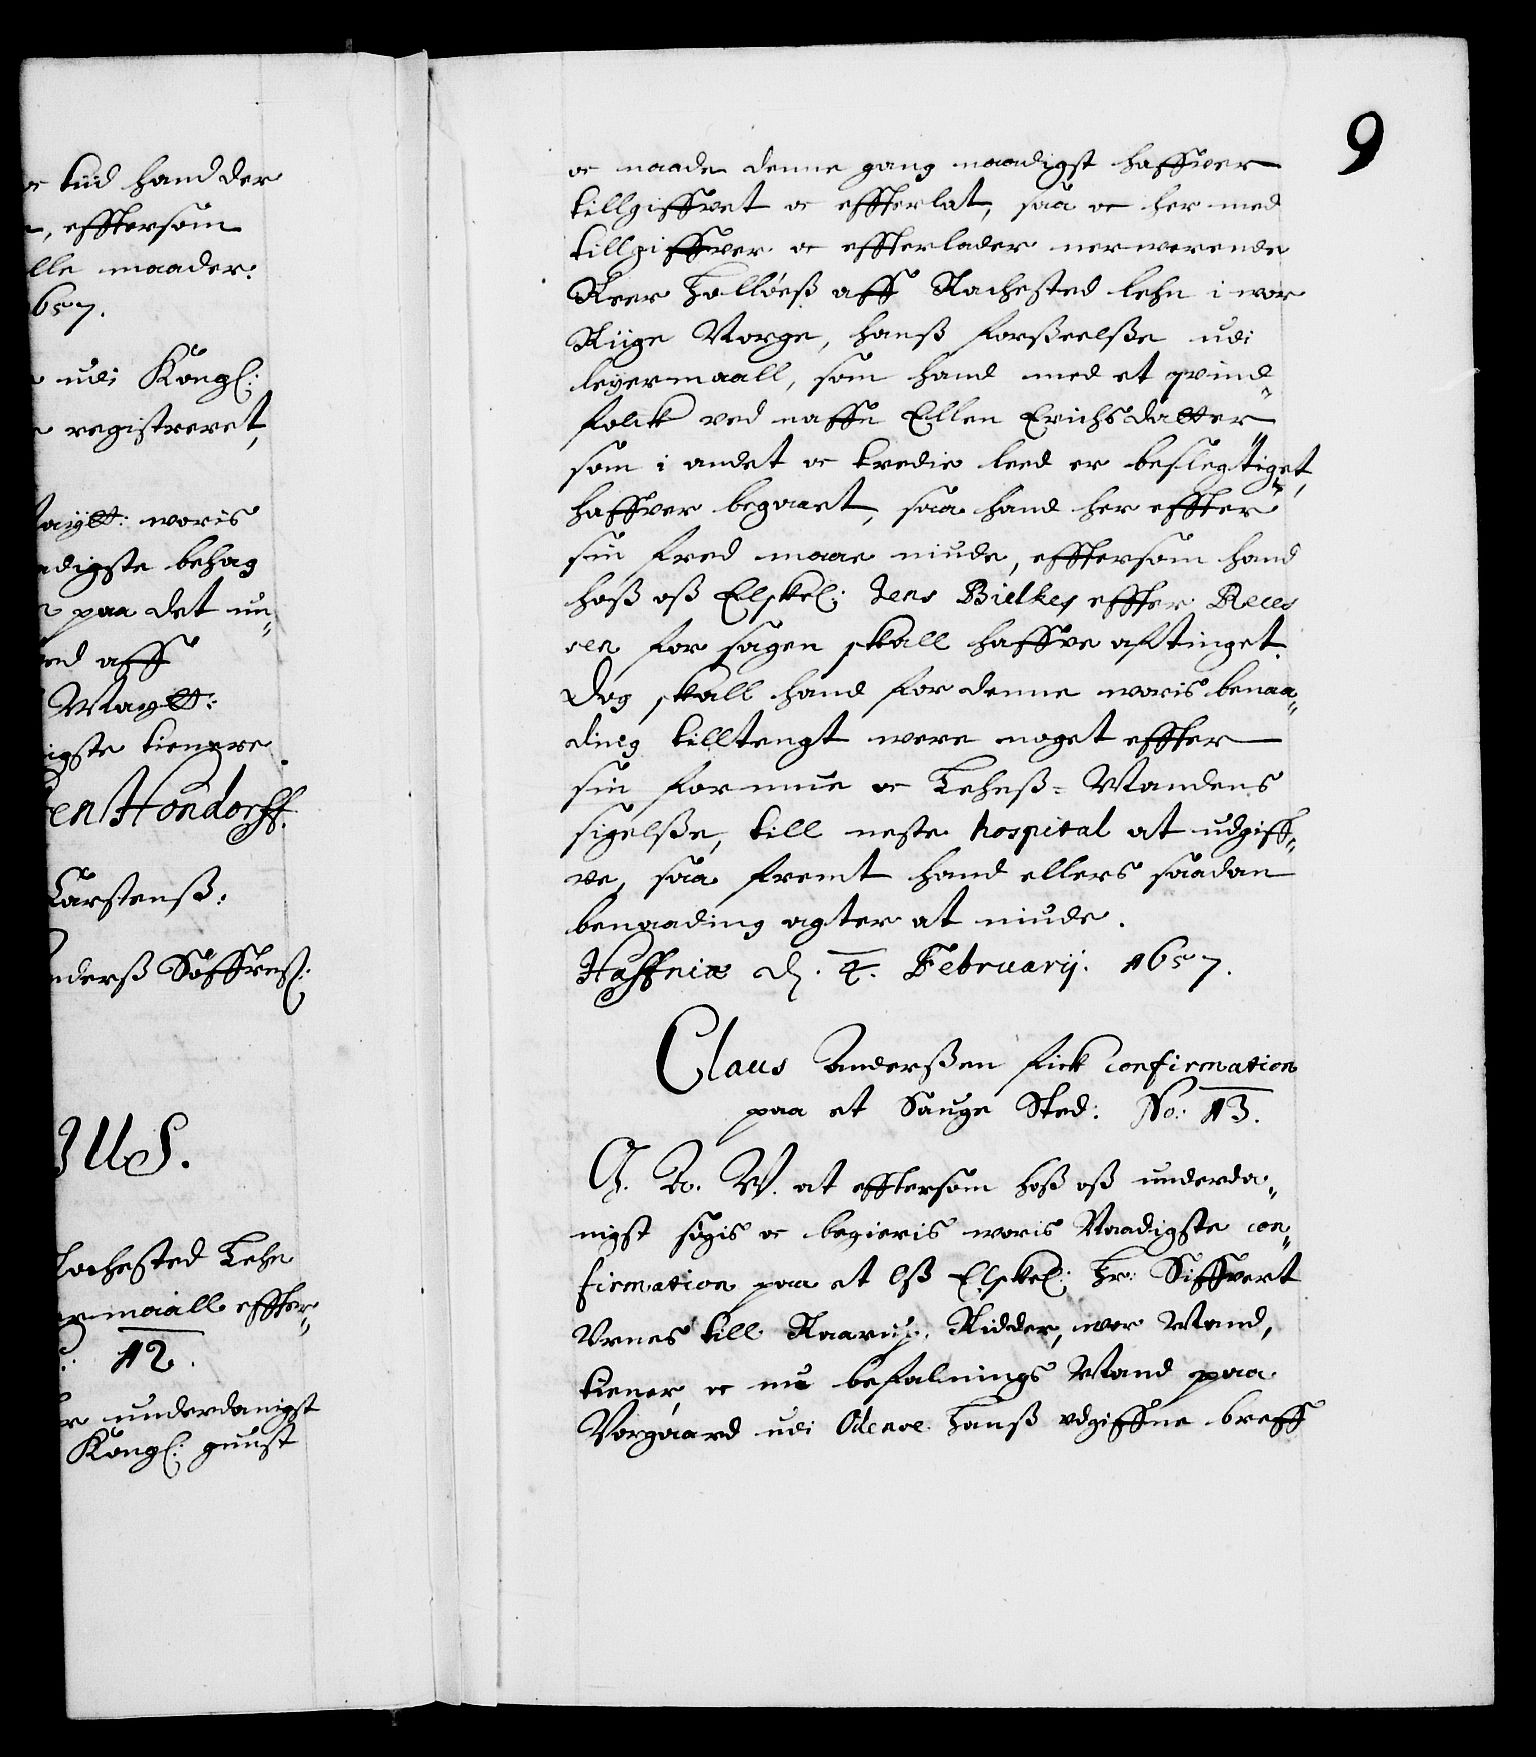 e tiid hand der
, effttersom
lle maader.
657.
udi Kongl:
registreret,
Maytt: woris
adigste behag
paa det un¬
ed aff
Maytt:
igste tienere.
en Hondorff.
Carstenß:
nderß Søffrenß:
JUS.
Bachested Lehn
ermaall effter¬
: 12.
r underdanigst
Kongl: gunst
9
oc naade denne gang naadigst haffver
tillgiffvet oc effterlat, saa oc her med
tillgiffver oc effterlader nerwerende
Peer Holløeß aff Rachested lehn i wor
Riige Norge, hanß forßeelße udi
leyermaall, som hand med et qvind¬
folck ved naffn Ellen Erichsdatter
som i andet oc tredie leed er beslegtiget,
haffver begaaet, saa hand her effter
sin fred maae niude, efftersom hand
hoß oß Elskel: Jens Bielkes effter Reces
sen for sagen skall haffve aftinget.
Dog skall hand for denne woris benaa¬
ding tilltengt were noget effter
sin formue oc Lehnß-Mandens
sigelße, till neste hospital at udgiff¬
ve, saa fremt hand ellers saadan
benaading agter at niude.
Haffniæ d. 4. Februarij. 1657.
Claus Anderßen fick confirmation
paa et Sauge Sted: No: 13.
G. A. W. at efftersom hoß oß underda¬
nigst søgis oc begieris woris Naadigste con¬
firmation paa et Oß Elskel: Hr: Siffvert
Vrnes till Raarup, Ridder, wor Mand,
tiener, oc nu befalnings Mand paa
Norgaard udi Odense Hanß udgiffne breff